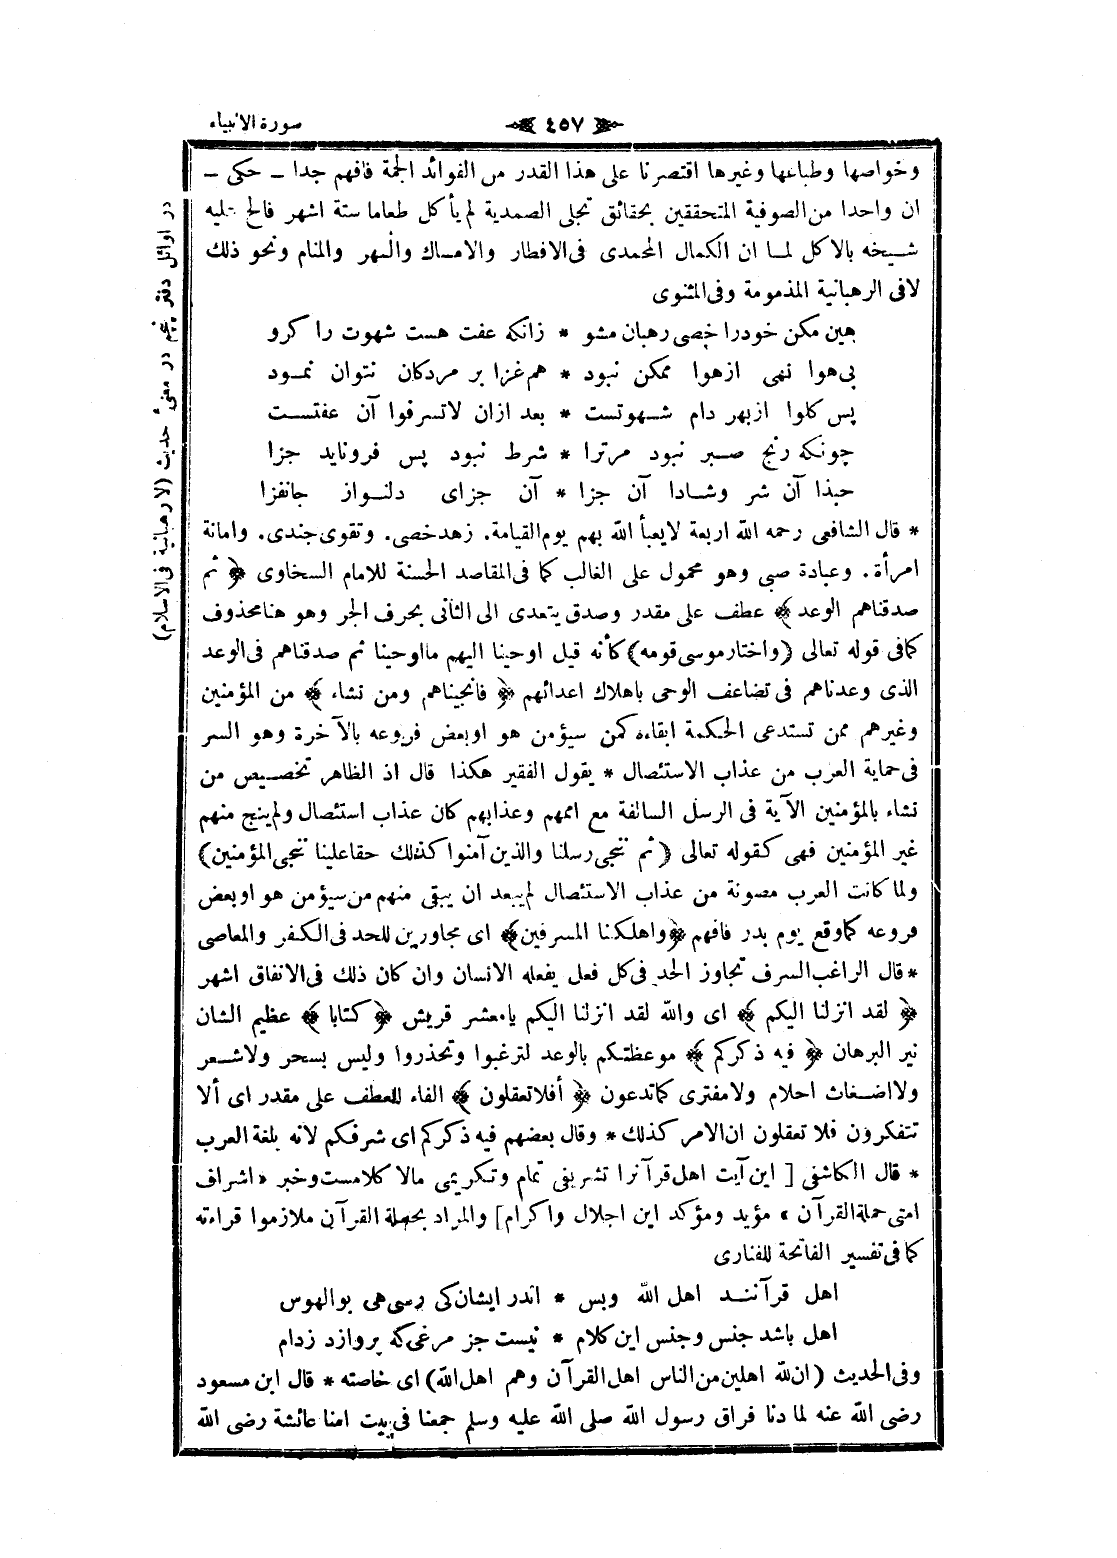 ﴿ ٤٥٧ ﴾ سورة الانبياء
وخواصها وطباعها وغيرها اقتصرنا على هذا القدر من الفوائد الجمة فافهم جدا ـ حكى ـ
ان واحدا من الصوفية المتحققين بحقائق تجلى الصمدية لم يأكل طعاما ستة اشهر فالح عليه
شيخه بالاكل لما ان الكمال المحمدى فى الافطار والامساك والسهر والمنام ونحو ذلك
لافى الرهبانية المذمومة وفى المثنوى
هين مكن خودرا خصى رهبان مشو * زانكه عفت هست شهوت را كرو
بى هوا نهى ازهوا ممكن نبود * هم غزا بر مردكان نتوان نمود
پس كلوا ازبهر دام شهوتست * بعد ازان لاتسرفوا آن عفتست
چونكه رنج صبر نبود مرترا * شرط نبود پس فرونايد جزا
حبذا آن شر وشادا آن جزا * آن جزاى دلنواز جانفزا
* قال الشافعى رحمه الله اربعة لايعبأ الله بهم يوم القيامة. زهد خصى. وتقوى جندى. وامانة
امرأة. وعبادة صبى وهو محمول على الغالب كما فى المقاصد الحسنة للامام السخاوى ﴿ ثم
صدقناهم الوعد ﴾ عطف على مقدر وصدق يتعدى الى الثانى بحرف الجر وهو هنا محذوف
كما فى قوله تعالى (واختار موسى قومه) كأنه قيل اوحينا اليهم ما اوحينا ثم صدقناهم فى الوعد
الذى وعدناهم فى تضاعف الوحى باهلاك اعدائهم ﴿ فانجيناهم ومن نشاء ﴾ من المؤمنين
وغيرهم ممن تستدعى الحكمة ابقاءه كمن سيؤمن هو اوبعض فروعه بالآخرة وهو السر
فى حماية العرب من عذاب الاستئصال * يقول الفقير هكذا قال اذ الظاهر تخصيص من
نشاء بالمؤمنين الآية فى الرسل السالفة مع اممهم وعذابهم كان عذاب استئصال ولم ينج منهم
غير المؤمنين فهى كقوله تعالى (ثم ننجى رسلنا والذين آمنوا كذلك حقا علينا ننجى المؤمنين)
ولما كانت العرب مصونة من عذاب الاستئصال لم يبعد ان يبقى منهم من سيؤمن هو اوبعض
فروعه كما وقع يوم بدر فافهم ﴿ واهلكنا المسرفين ﴾ اى مجاوزين للحد فى الكفر والمعاصى
* قال الراغب السرف تجاوز الحد فى كل فعل يفعله الانسان وان كان ذلك فى الانفاق اشهر
﴿ لقد انزلنا اليكم ﴾ اى والله لقد انزلنا اليكم يامعشر قريش ﴿ كتابا ﴾ عظيم الشان
نير البرهان ﴿ فيه ذكركم ﴾ موعظتكم بالوعد لترغبوا وتحذروا وليس بسحر ولاشعر
ولااضغاث احلام ولامفترى كما تدعون ﴿ أفلا تعقلون ﴾ الفاء للعطف على مقدر اى ألا
تتفكرون فلا تعقلون ان الامر كذلك * وقال بعضهم فيه ذكركم اى شرفكم لانه بلغة العرب
* قال الكاشفى [ اين آيت اهل قرآنرا تشريفى تمام وتكريمى مالا كلامست وخبر « اشراف
امتى حملة القرآن » مؤيد ومؤكد اين اجلال واكرام ] والمراد بحملة القرآن ملازموا قراءته
كما فى تفسير الفاتحة للفنارى
اهل قرآنند اهل الله وبس * اندر ايشان كى رسى هى بوالهوس
اهل باشد جنس وجنس اين كلام * نيست جز مرغى كه پروازد زدام
وفى الحديث (ان لله اهلين من الناس اهل القرآن وهم اهل الله) اى خاصته * قال ابن مسعود
رضى الله عنه لما دنا فراق رسول الله صلى الله عليه وسلم جمعنا فى بيت امنا عائشة رضى الله
در اوائل دفتر پنجم در معنىٔ حديث (لا رهبانية فى الاسلام)